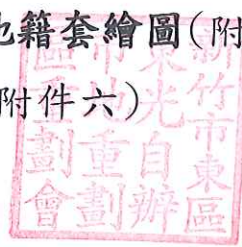 地籍套繪圖(附
附件六)
新竹市東區
東光自辦
市地重劃
區重劃會